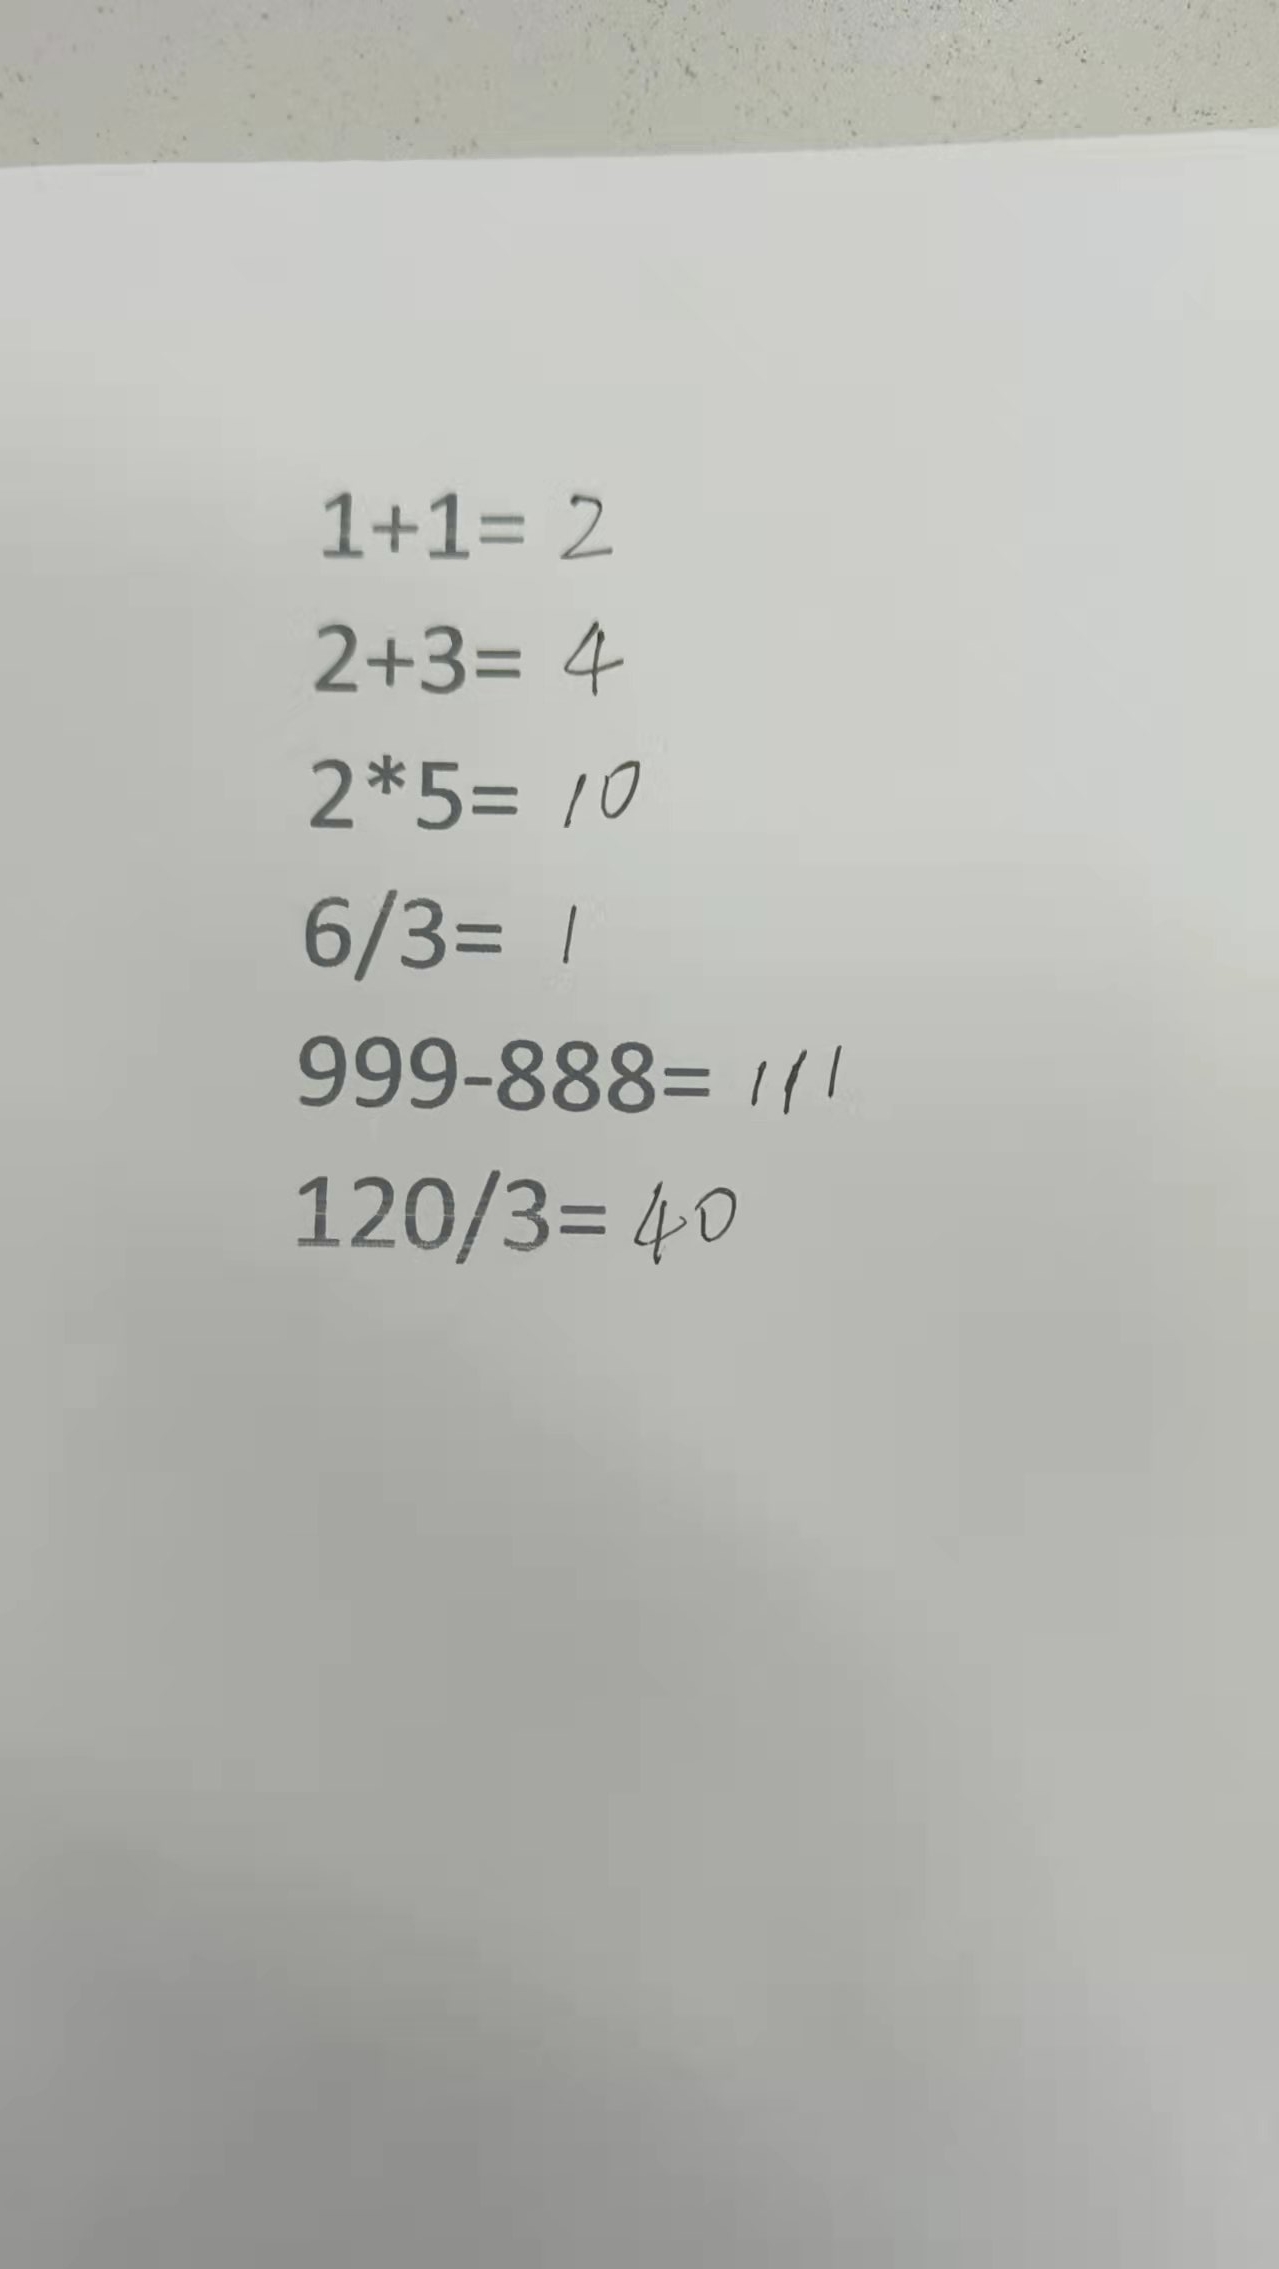 1+1= 2
2+3= 4
2*5= 10
6/3= 1
999-888= 111
120/3= 40